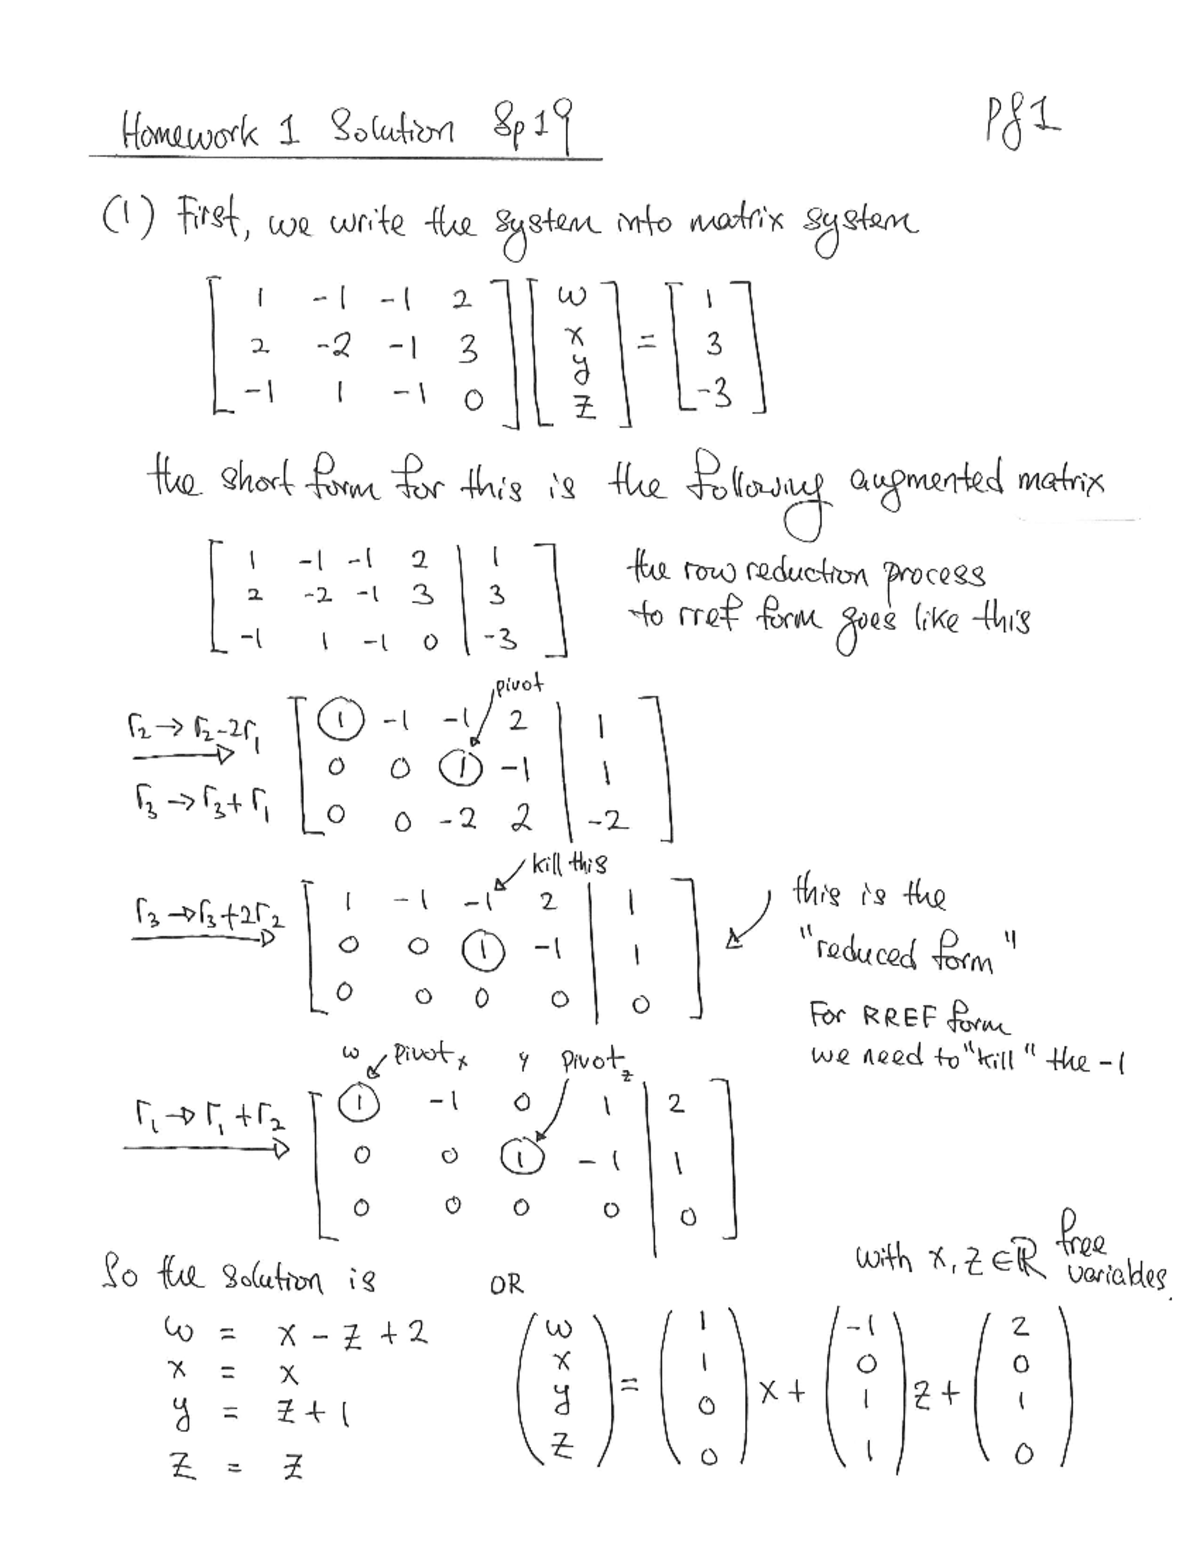 Homework 1 Solution Sp19
Pg1
(1) First, we write the system into matrix system
[ 1 -1 -1 2 ] [ w ] = [ 1 ]
[ 2 -2 -1 3 ] [ x ] [ 3 ]
[ -1 1 -1 0 ] [ y ] [ -3 ]
[ z ]
the short form for this is the following augmented matrix
[ 1 -1 -1 2 | 1 ]
[ 2 -2 -1 3 | 3 ]
[ -1 1 -1 0 | -3 ]
the row reduction process
to rref form goes like this
pivot
r2 → r2-2r1
r3 → r3+r1
[ 1 -1 -1 2 | 1 ]
[ 0 0 1 -1 | 1 ]
[ 0 0 -2 2 | -2 ]
kill this
r3 → r3+2r2
[ 1 -1 -1 2 | 1 ]
[ 0 0 1 -1 | 1 ]
[ 0 0 0 0 | 0 ]
this is the
"reduced form"
For RREF form
we need to "kill" the -1
w pivot x y pivot z
r1 → r1 + r2
[ 1 -1 0 1 | 2 ]
[ 0 0 1 -1 | 1 ]
[ 0 0 0 0 | 0 ]
So the solution is
w = x - z + 2
x = x
y = z + 1
z = z
OR
with x, z ∈ ℝ free
variables.
( w ) = ( 1 ) x + ( -1 ) z + ( 2 )
( x ) ( 1 ) ( 0 ) ( 0 )
( y ) ( 0 ) ( 1 ) ( 1 )
( z ) ( 0 ) ( 1 ) ( 0 )